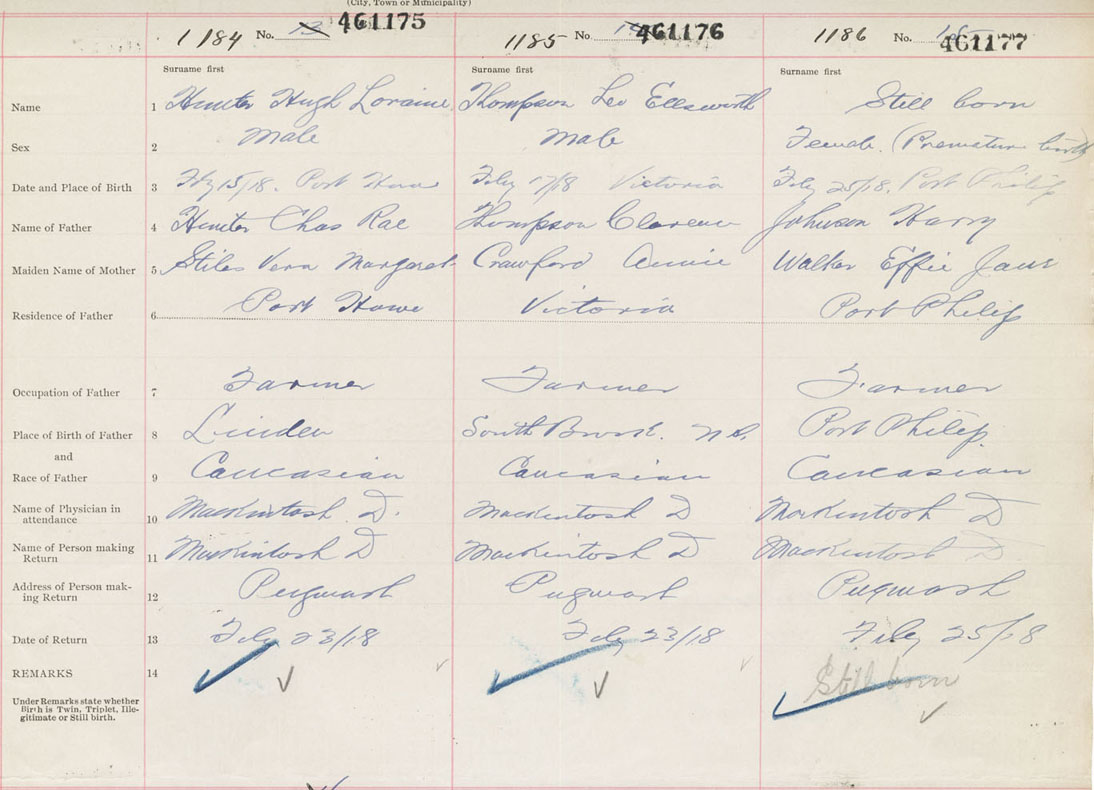 (City, Town or Municipality)
1184 No. 13 461175 1185 No. 461176 1186 No. 461177
Surname first Surname first Surname first
Name 1 Hunter Hugh Loraine Thompson Leo Ellsworth Still born
Sex 2 Male Male Female. (Premature birth)
Date and Place of Birth 3 Feby 15/18. Port Howe Feby 17/18 Victoria Feby 25/18. Port Philip
Name of Father 4 Hunter Chas Rae Thompson Clarence Johnson Harry
Maiden Name of Mother 5 Stiles Vera Margaret Crawford Annie Walker Effie Jane
Residence of Father 6 Port Howe Victoria Port Philip
Occupation of Father 7 Farmer Farmer Farmer
Place of Birth of Father 8 Linden South Brook. N.S. Port Philip.
and
Race of Father 9 Caucasian Caucasian Caucasian
Name of Physician in
attendance 10 Mackintosh D. Mackintosh D Mackintosh D
Name of Person making
Return 11 Mackintosh D Mackintosh D Mackintosh D
Address of Person mak-
ing Return 12 Pugwash Pugwash Pugwash
Date of Return 13 Feby 23/18 Feby 23/18 Feby 25/18
REMARKS 14 Still born
Under Remarks state whether
Birth is Twin, Triplet, Ille-
gitimate or Still birth.